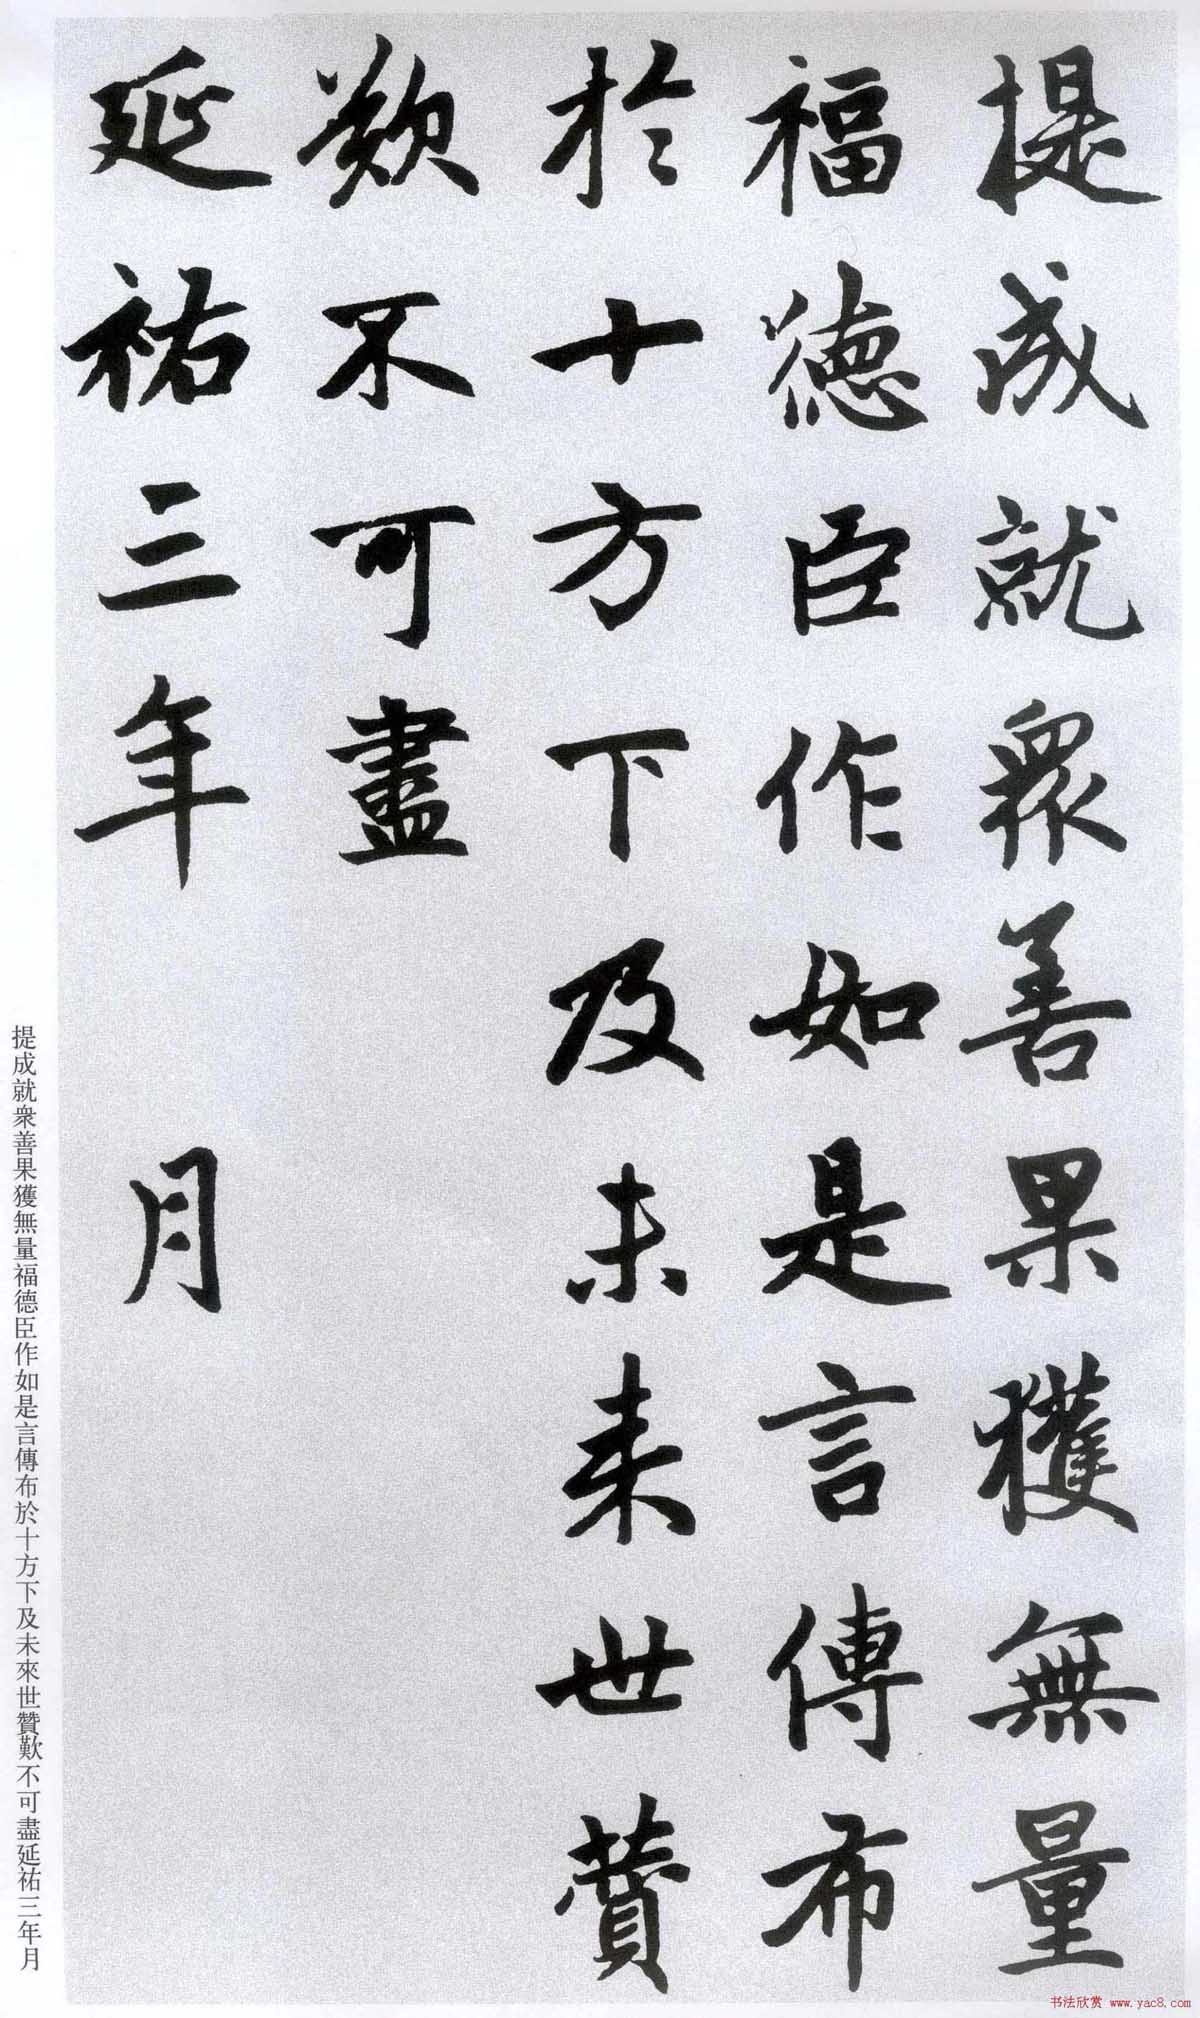 提成就衆善果獲無量
福德臣作如是言傳布
於十方下及未来世賛
歎不可盡
延祐三年 月
提成就衆善果獲無量福德臣作如是言傳布於十方下及未來世贊歎不可盡延祐三年月
书法欣赏 www.yac8.com